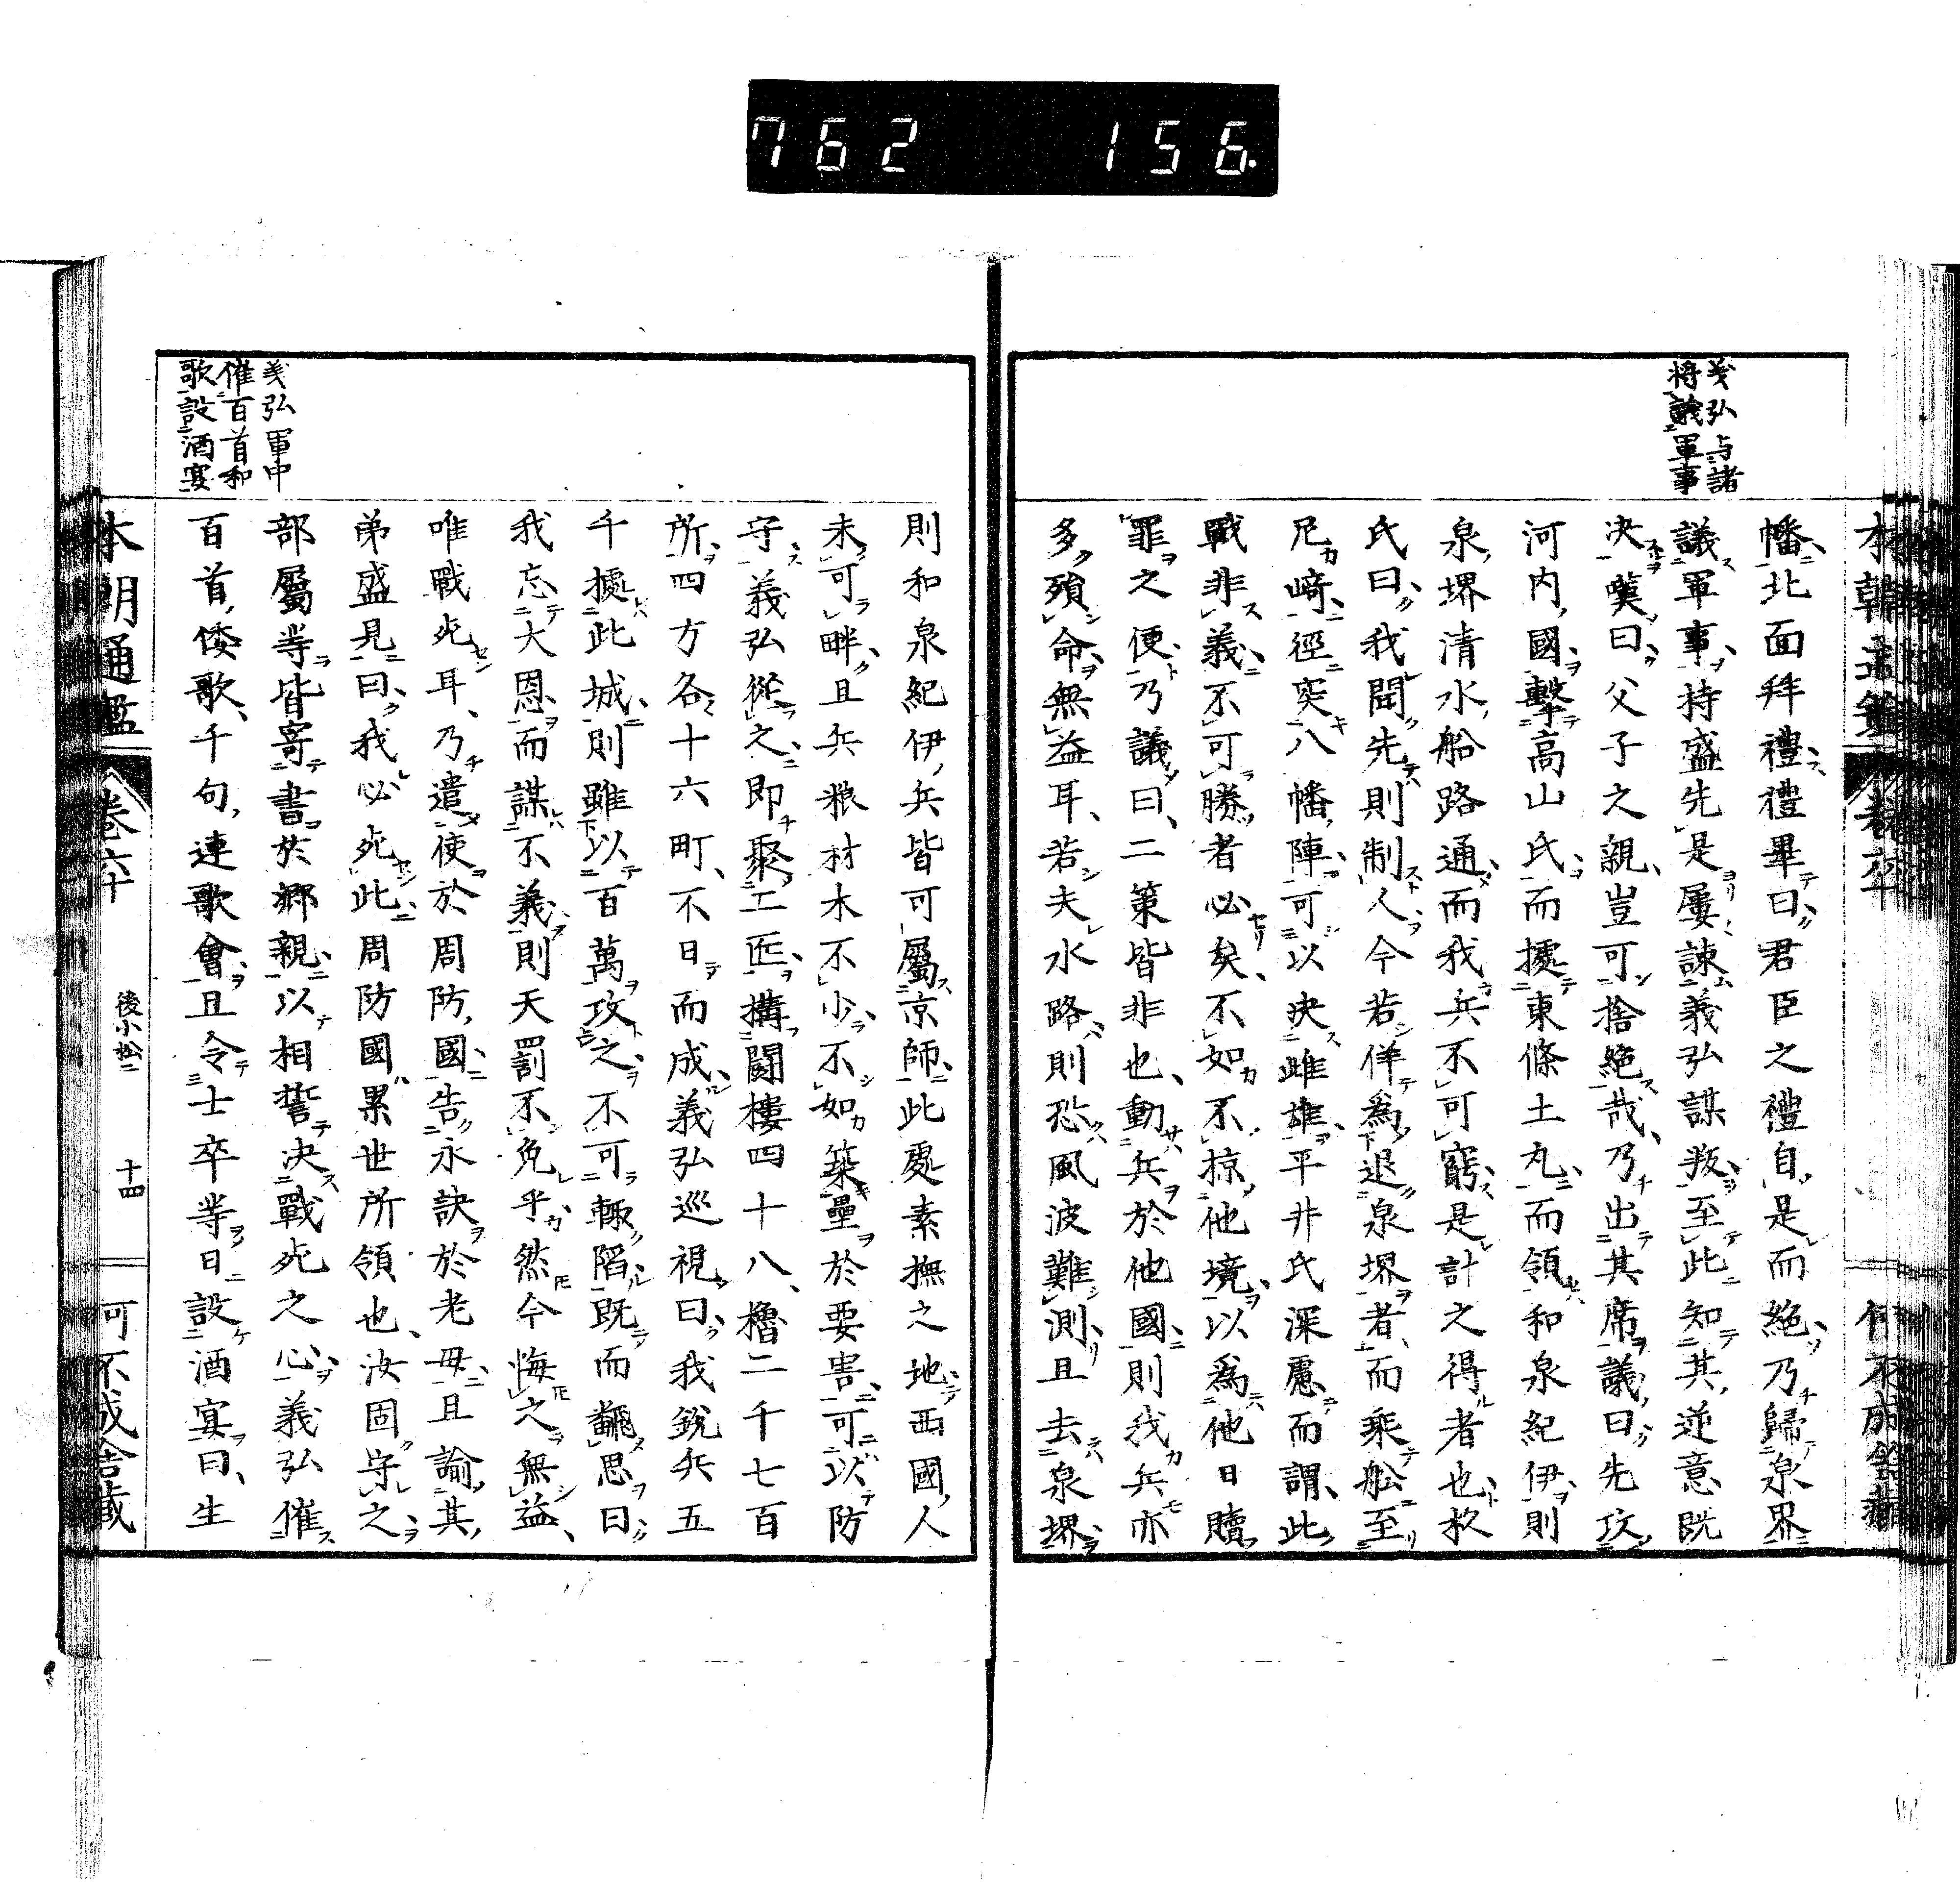 762 156.
義弘与諸
将議軍事
幡北面拜禮禮畢曰君臣之禮自是而絶乃歸泉界
議軍事持盛先是屢諫義弘謀叛至此知其逆意既
决嘆曰父子之親豈可捨絶哉乃出其席議曰先攻
河内國擊高山氏而據東條土丸而領和泉紀伊則
泉堺清水船路通而我兵不可窮是計之得者也杉
氏曰我聞先則制人今若佯為退泉堺者而乘舩至
尼﨑徑突八幡陣可以决雌雄平井氏深慮而謂此
戰非義不可勝者必矣不如不掠他境以為他日贖
罪之便乃議曰二策皆非也動兵於他國則我兵亦
多殞命無益耳若夫水路則恐風波難測且去泉堺
則和泉紀伊兵皆可屬京師此處素撫之地西國人
未可畔且兵粮材木不少不如築壘於要害可以防
守義弘從之即聚工匠搆鬪樓四十八櫓二千七百
所四方各十六町不日而成義弘巡視曰我鋭兵五
千據此城則雖以百萬攻之不可輙陷既而飜思曰
我忘大恩而謀不義則天罰不免乎然今悔之無益
唯戰死耳乃遣使於周防國告永訣於老母且諭其
弟盛見曰我必死此周防國累世所領也汝固守之
部屬等皆寄書於郷親以相誓决戰死之心義弘催
百首倭歌千句連歌會且令士卒等日設酒宴曰生
義弘軍中
催百首和
歌設酒宴
本朝通鑑 卷六十 後小松二 十四